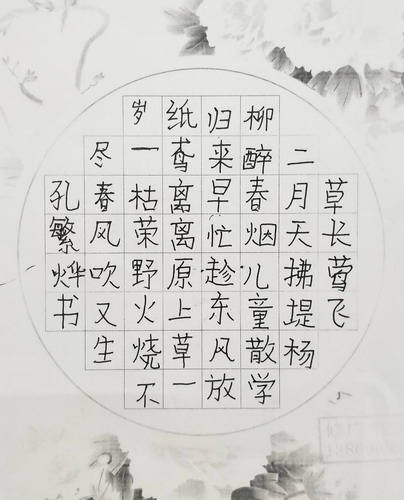 草长莺飞
二月天拂堤杨
柳醉春烟儿童散学
归来早忙趁东风放
纸鸢离离原上草一
岁一枯荣野火烧不
尽春风吹又生
孔繁烨书